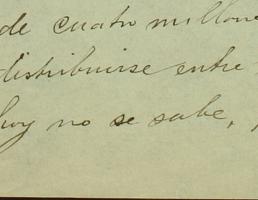 de cuatro millone
distribuirse entre
hoy no se sabe,